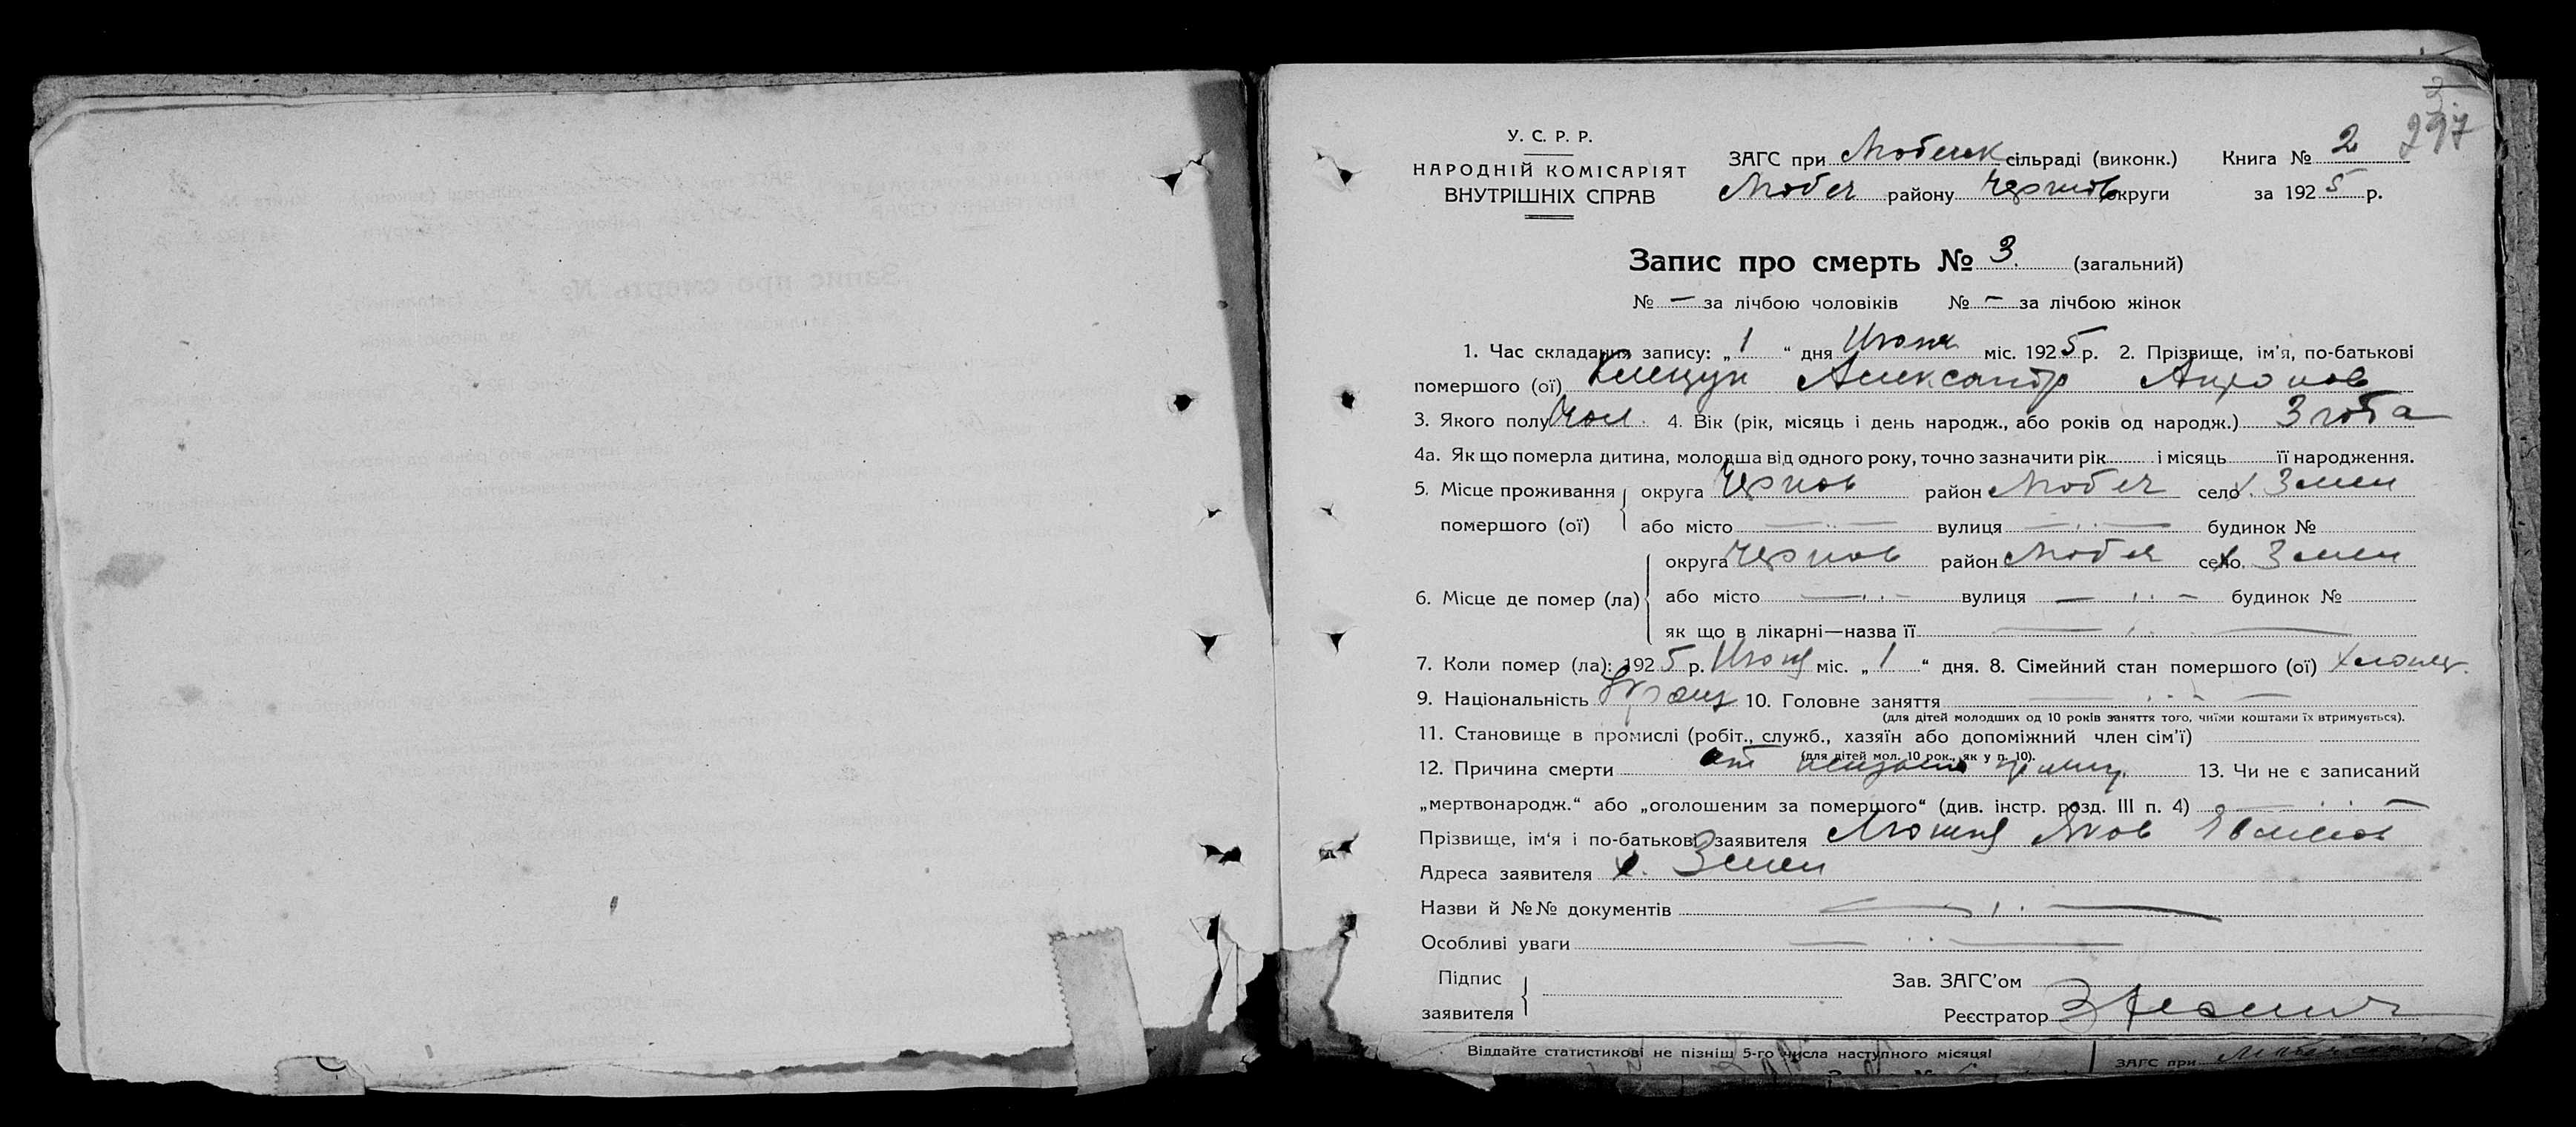 3
297
У. С. Р. Р.
НАРОДНІЙ КОМІСАРІЯТ
ВНУТРІШНІХ СПРАВ
ЗАГС при Любечск сільраді (виконк.) Книга № 2
Любеч району Черніговокруги за 1925 р.
Запис про смерть № 3. (загальний)
№ — за лічбою чоловіків № — за лічбою жінок
1. Час складання запису: „1“ дня Июня міс. 1925 р. 2. Прізвище, ім'я, по-батькові
помершого (ої) Клещун Александр
3. Якого полу Чол. 4. Вік (рік, місяць і день народж., або років од народж.) 3 года
4а. Як що померла дитина, молодша від одного року, точно зазначити рік і місяць її народження.
5. Місце проживання округа район Любеч село х. Змеи
помершого (ої) або місто — „ — вулиця — „ — будинок №
округа район Любеч село х. Змеи
6. Місце де помер (ла) або місто — „ — вулиця — „ — будинок №
як що в лікарні—назва її — „ —
7. Коли помер (ла): 1925 р. Июня міс. „1“ дня. 8. Сімейний стан помершого (ої) хлопец.
9. Національність Украинц 10. Головне заняття — „ —
(для дітей молодших од 10 років заняття того, чиїми коштами їх втримується).
11. Становище в промислі (робіт., служб., хазяїн або допоміжний член сім'ї)
(для дітей мол. 10 рок., як у п. 10).
12. Причина смерти от 13. Чи не є записаний
„мертвонародж.“ або „оголошеним за помершого“ (див. інстр. розд. III п. 4) — „ —
Прізвище, ім'я і по-батькові заявителя Яков
Адреса заявителя х. Змеи
Назви й №№ документів — „ —
Особливі уваги — „ —
Підпис
заявителя
Зав. ЗАГС'ом
Реєстратор
Віддайте статистикові не пізніш 5-го числа наступного місяця!
ЗАГС при